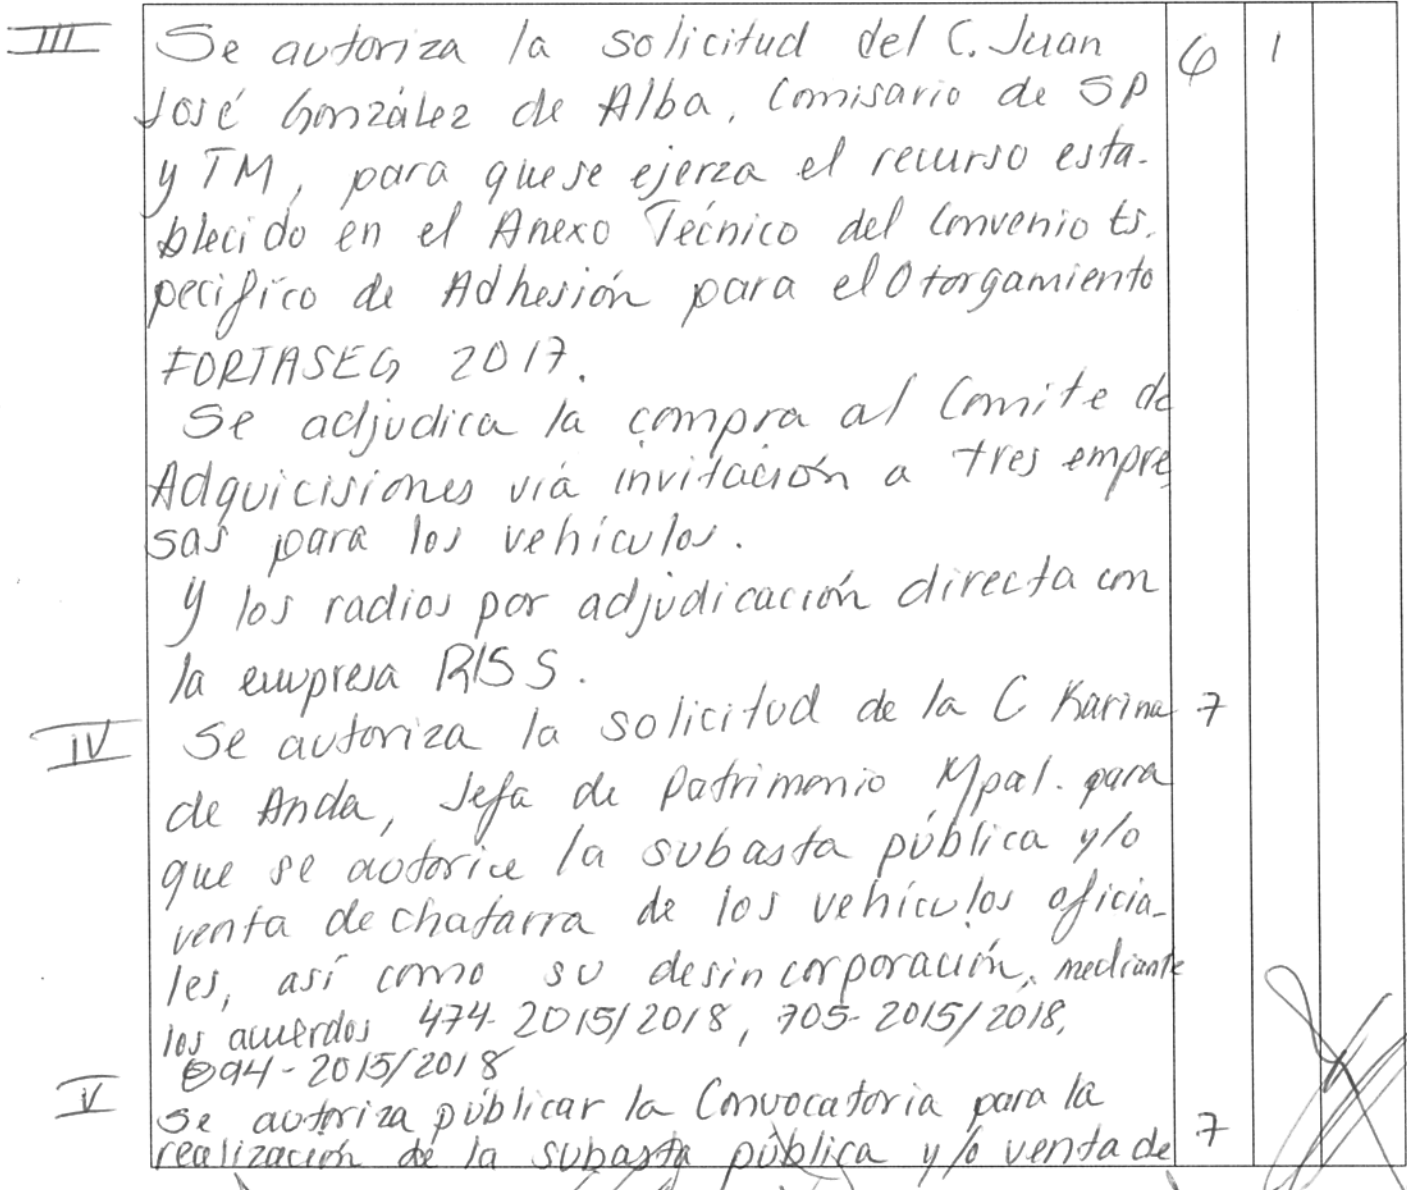 III Se autoriza la solicitud del C. Juan 6 1
José González de Alba, Comisario de SP
y TM, para que se ejerza el recurso esta-
blecido en el Anexo Técnico del Convenio Es-
pecifico de Adhesión para el Otorgamiento
FORTASEG 2017.
Se adjudica la compra al Comite de
Adquicisiones vía invitación a tres empre
sas para los vehículos.
y los radios por adjudicación directa con
la empresa RISS.
IV Se autoriza la solicitud de la C Karina 7
de Anda, Jefa de Patrimonio Mpal. para
que se autorice la subasta pública y/o
venta de chatarra de los vehículos oficia-
les, así como su desincorporación, mediante
los acuerdos 474-2015/2018, 705-2015/2018,
094-2015/2018
V Se autoriza públicar la Convocatoria para la
realización de la subasta pública y/o venta de 7